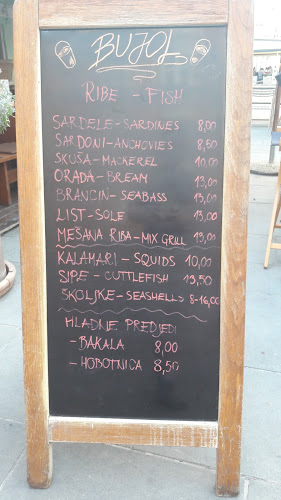 BUJOL
RIBE - FISH
SARDELE - SARDINES 8,00
SARDONI - ANCHOVIES 8,50
SKUŠA - MACKEREL 10,00
ORADA - BREAM 13,00
BRANCIN - SEABASS 13,00
LIST - SOLE 13,00
MEŠANA RIBA - MIX GRILL 13,00
KALAMARI - SQUIDS 10,00
SIPE - CUTTLEFISH 13,50
ŠKOLJKE - SEASHELLS 8-16,00
HLADNE PREDJEDI
- BAKALA 8,00
- HOBOTNICA 8,50